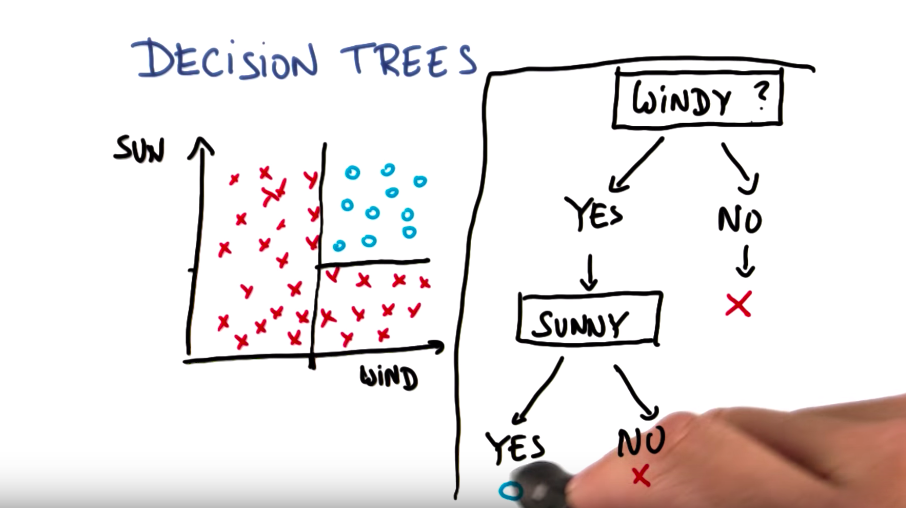 DECISION TREES
SUN
WIND
WINDY ?
YES
NO
SUNNY
YES
NO